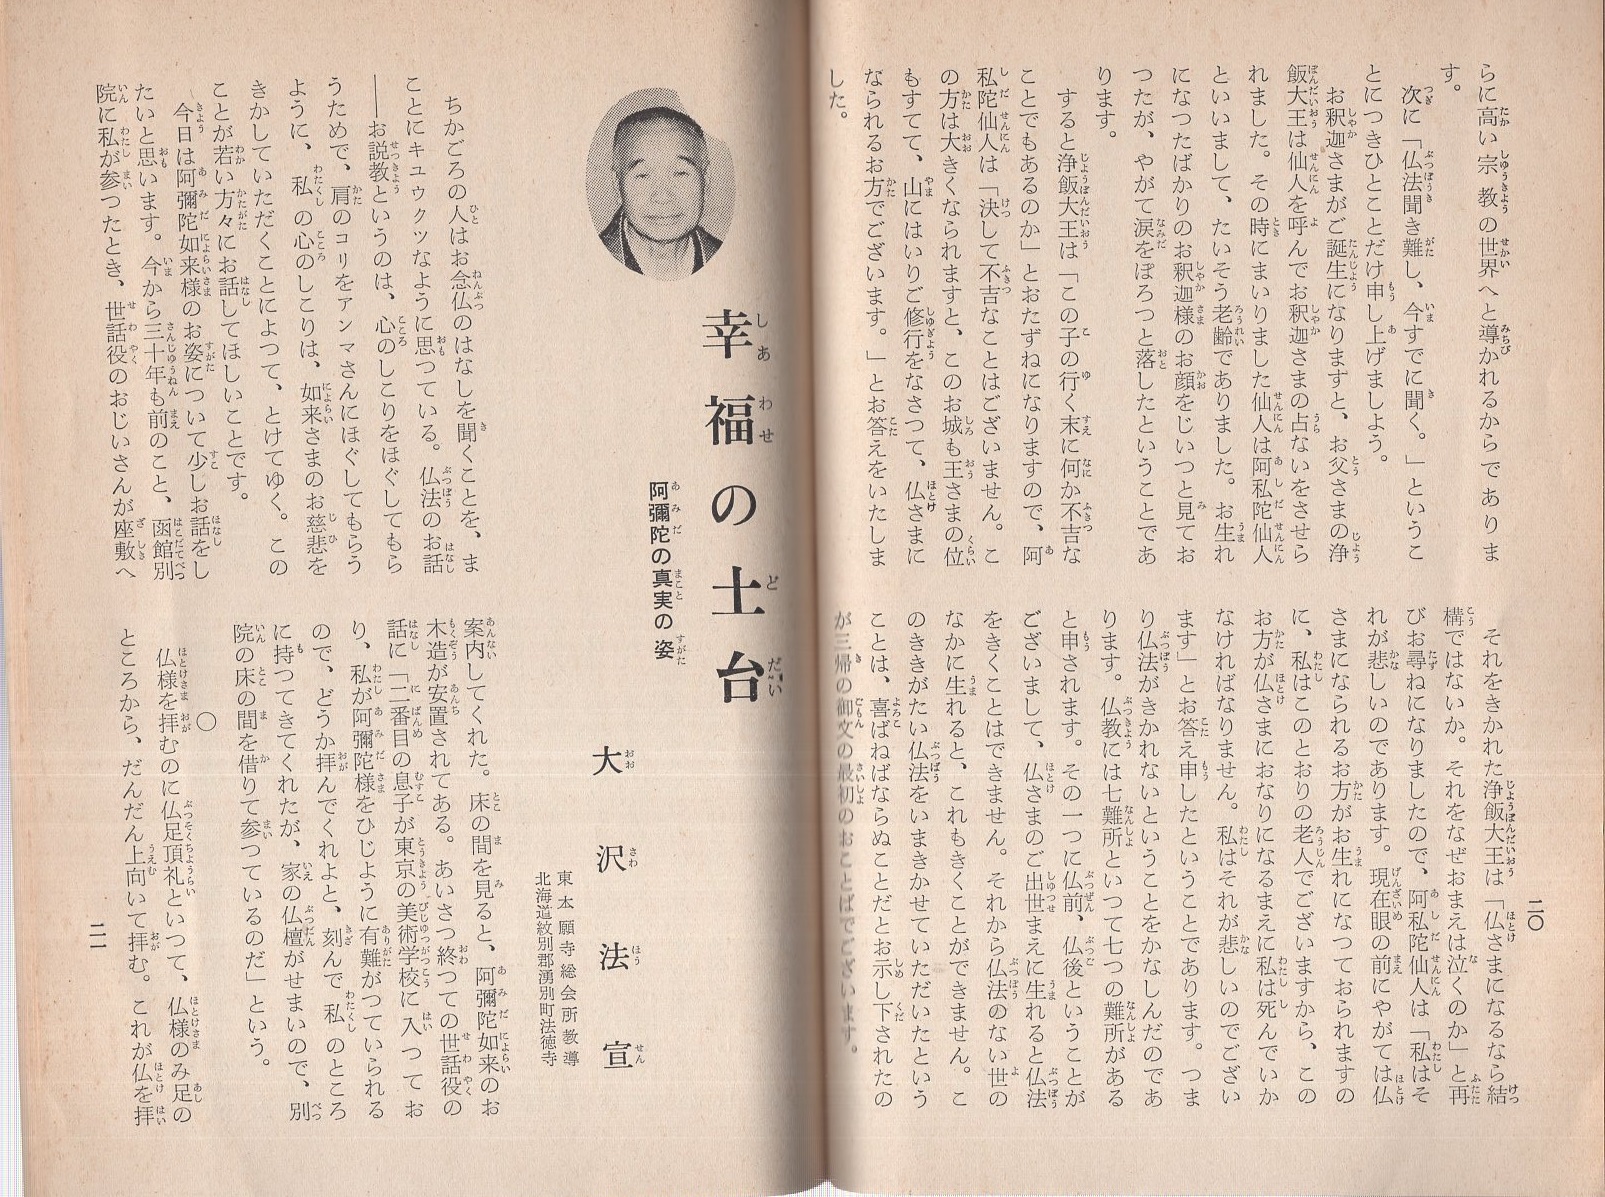 らに高い宗教の世界へと導かれるからでありま
す。
次に「仏法聞き難し、今すでに聞く。」というこ
とにつきひとことだけ申し上げましよう。
お釈迦さまがご誕生になりますと、お父さまの浄
飯大王は仙人を呼んでお釈迦さまの占ないをさせら
れました。その時にまいりました仙人は阿私陀仙人
といいまして、たいそう老齢でありました。お生れ
になつたばかりのお釈迦様のお顔をじいつと見てお
つたが、やがて涙をぽろつと落したということであ
ります。
すると浄飯大王は「この子の行く末に何か不吉な
ことでもあるのか」とおたずねになりますので、阿
私陀仙人は「決して不吉なことはございません。こ
の方は大きくなられますと、このお城も王さまの位
もすてて、山にはいりご修行をなさつて、仏さまに
なられるお方でございます。」とお答えをいたしま
した。
それをきかれた浄飯大王は「仏さまになるなら結
構ではないか。それをなぜおまえは泣くのか」と再
びお尋ねになりましたので、阿私陀仙人は「私はそ
れが悲しいのであります。現在眼の前にやがては仏
さまになられるお方がお生れになつておられますの
に、私はこのとおりの老人でございますから、この
お方が仏さまにおなりになるまえに私は死んでいか
なければなりません。私はそれが悲しいのでござい
ます」とお答え申したということであります。つま
り仏法がきかれないということをかなしんだのであ
ります。仏教には七難所といつて七つの難所がある
と申されます。その一つに仏前、仏後ということが
ございまして、仏さまのご出世まえに生れると仏法
をきくことはできません。それから仏法のない世の
なかに生れると、これもきくことができません。こ
のききがたい仏法をいまきかせていただいたという
ことは、喜ばねばならぬことだとお示し下されたの
が三帰の御文の最初のおことばでございます。
二〇
幸福の土台
阿彌陀の真実の姿
大沢法宣
東本願寺総会所教導
北海道紋別郡湧別町法徳寺
ちかごろの人はお念仏のはなしを聞くことを、ま
ことにキユウクツなように思つている。仏法のお話
――お説教というのは、心のしこりをほぐしてもら
うためで、肩のコリをアンマさんにほぐしてもらう
ように、私の心のしこりは、如来さまのお慈悲を
きかしていただくことによつて、とけてゆく。この
ことが若い方々にお話してほしいことです。
今日は阿彌陀如来様のお姿について少しお話をし
たいと思います。今から三十年も前のこと、函館別
院に私が参つたとき、世話役のおじいさんが座敷へ
案内してくれた。床の間を見ると、阿彌陀如来のお
木造が安置されてある。あいさつ終つての世話役の
話に「二番目の息子が東京の美術学校に入つてお
り、私が阿彌陀様をひじように有難がつていられる
ので、どうか拝んでくれよと、刻んで私のところ
に持つてきてくれたが、家の仏檀がせまいので、別
院の床の間を借りて参つているのだ」という。
〇
仏様を拝むのに仏足頂礼といつて、仏様のみ足の
ところから、だんだん上向いて拝む。これが仏を拝
二一